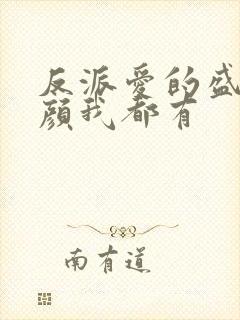 反派爱的盛
颜我都有
南有道